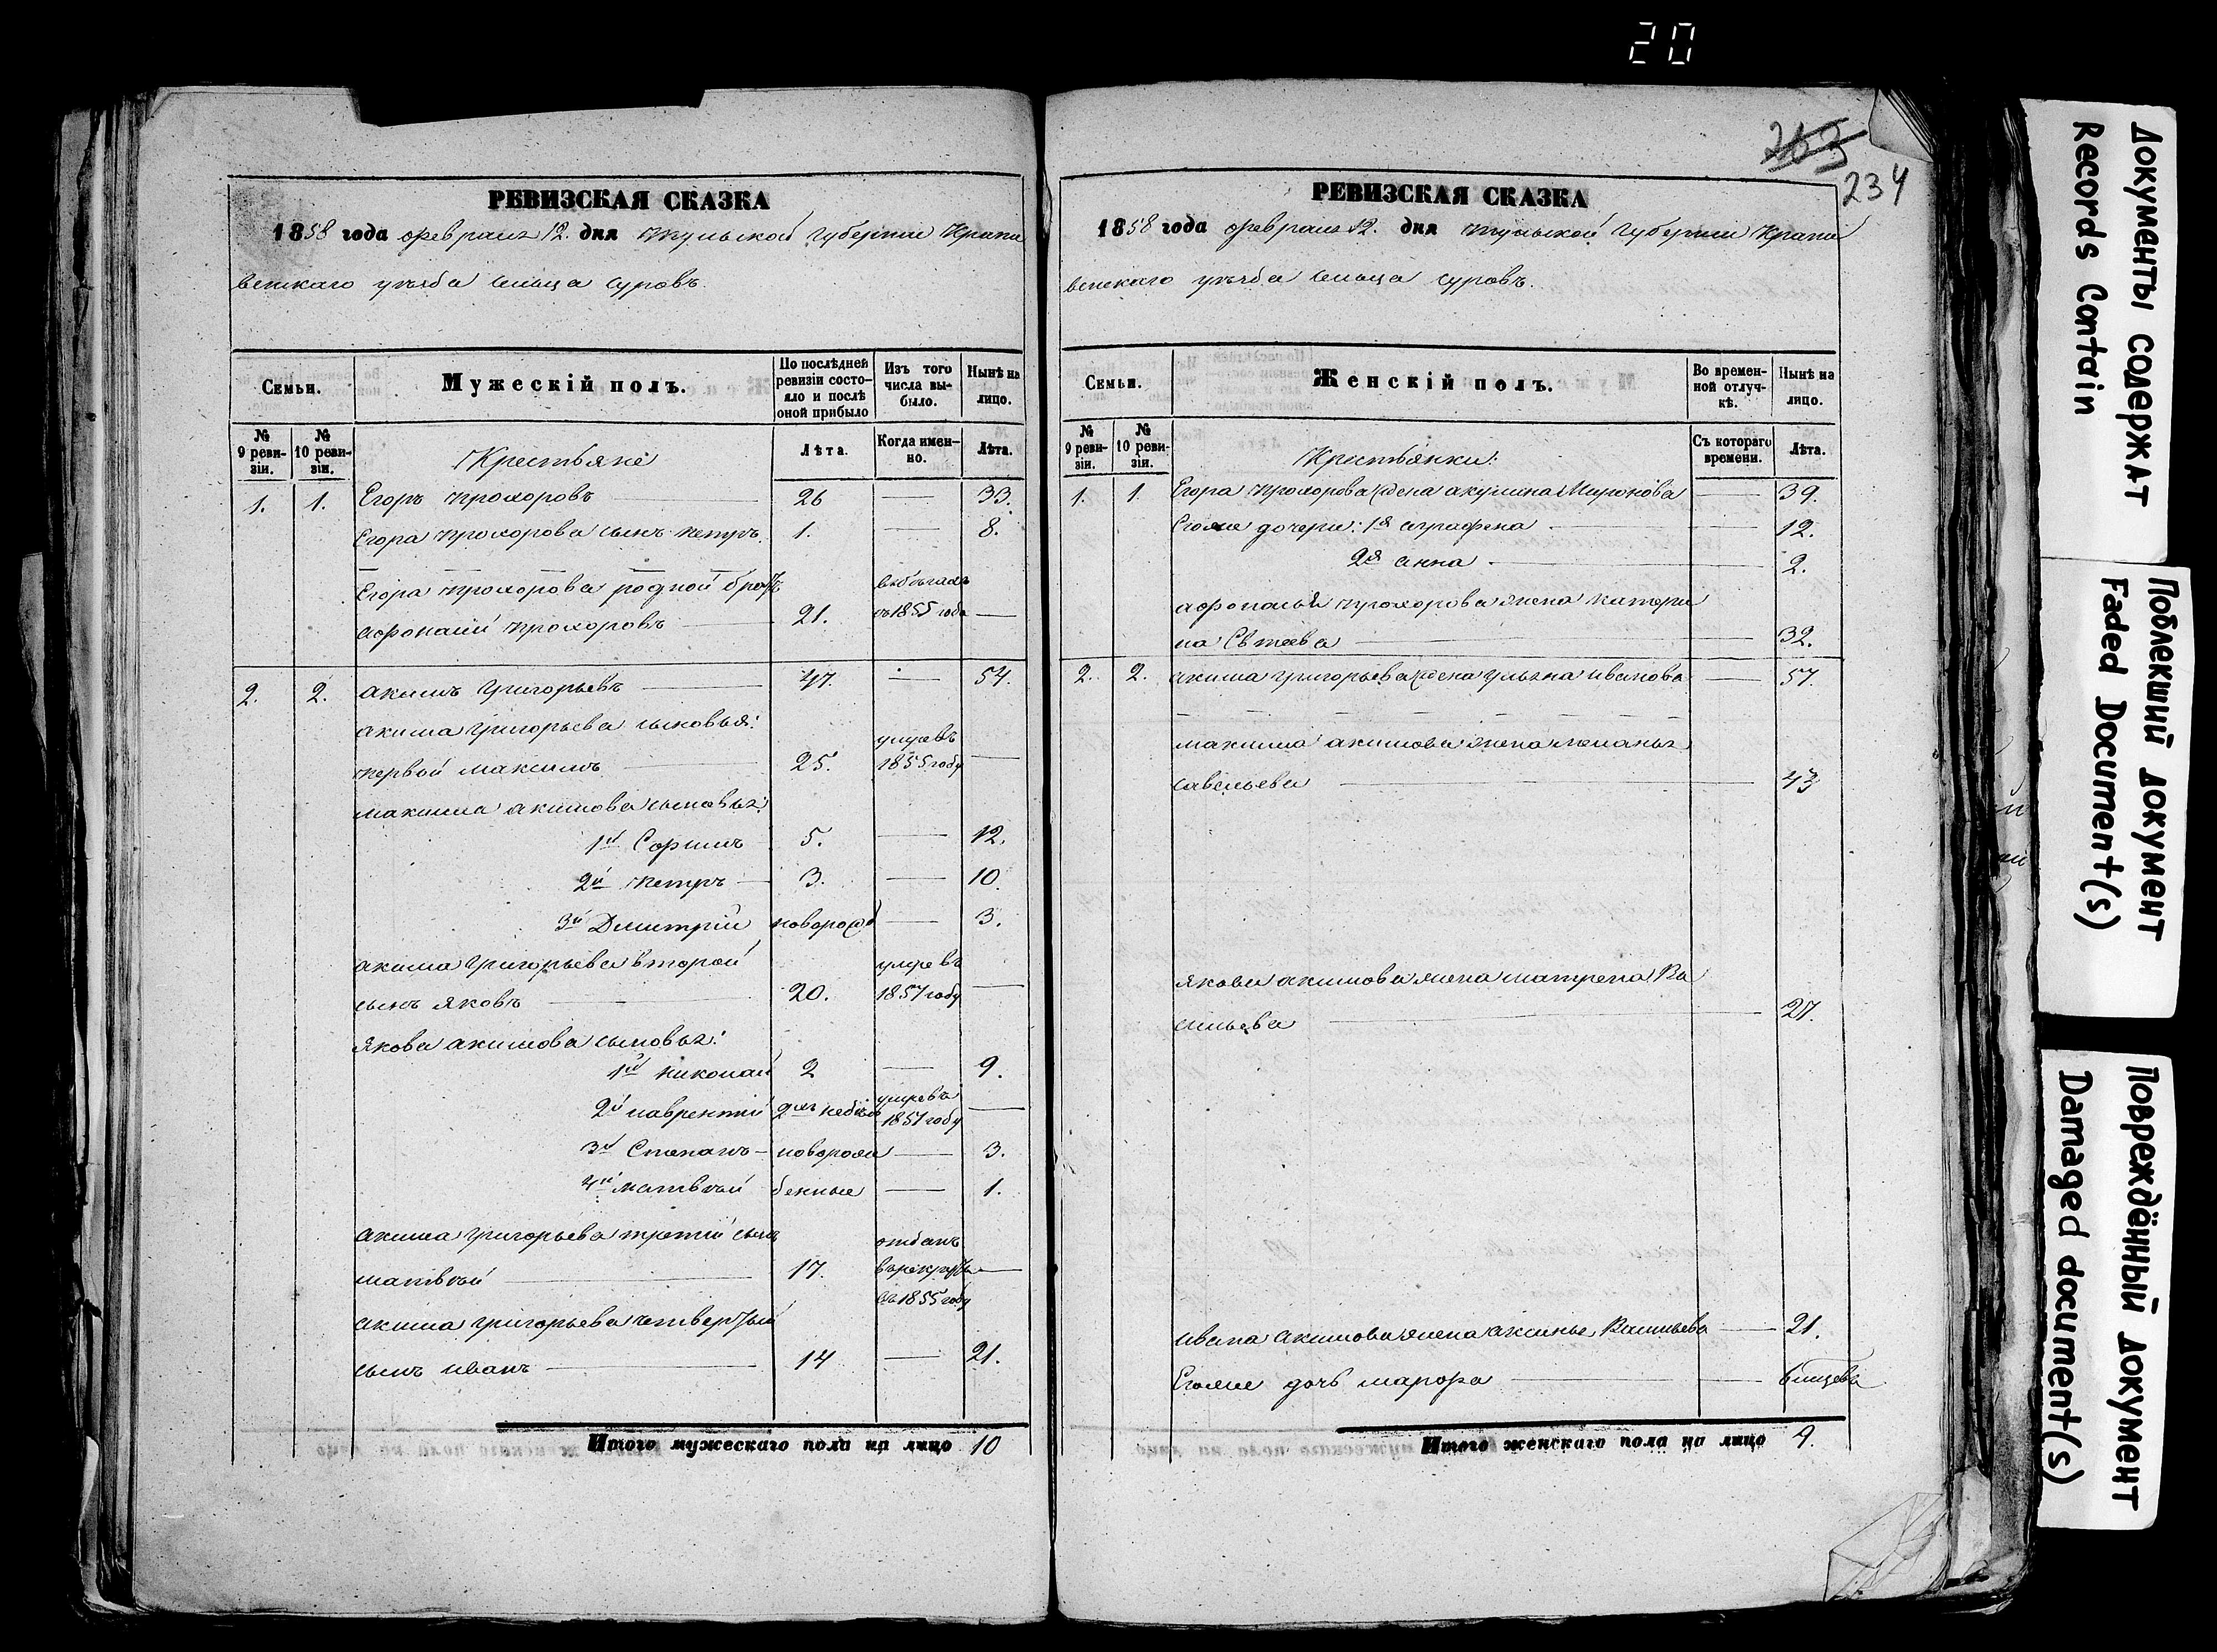 20
263
234
РЕВИЗСКАЯ СКАЗКА
1858 года февраля 12. дня Тульской Губернии Крапи
венскаго уѣзда сельца Суровъ.
Семьи.
Мужескій полъ.
По послѣдней ревизіи состояло и послѣ оной прибыло
Изъ того числа выбыло.
Нынѣ на лицо.
№ 9 ревизіи.
№ 10 ревизіи.
Крестьяне
Лѣта.
Когда именно.
Лѣта.
1. 1. Егоръ Прохоровъ 26 — 33.
Егора Прохорова сынъ Петръ. 1. — 8.
Егора Прохорова родной братъ
Афонасій Прохоровъ 21. въ бѣгахъ съ 1855 года —
2. 2. Акимъ Григорьевъ 47. — 54.
Акима Григорьева сыновья:
первой Максимъ 25. умре въ 1855 году —
Максима Акимова сыновья:
1й 5. — 12.
2й Петръ — 3. — 10.
3й Дмитрій новорожд — 3.
Акима Григорьева второй
сынъ Яковъ 20. умре въ 1857 году —
Якова Акимова сыновья:
1й Николай 2 — 9.
2й Лаврентій 2хъ недѣль умре въ 1851 году —
3й Степанъ — новорож — 3.
4й Матвѣй денные — 1.
Акима Григорьева третій сынъ
Матвѣй 17. отданъ въ рекруты въ 1855 году —
Акима Григорьева четвертый
сынъ Иванъ 14 — 21.
Итого мужескаго пола на лицо 10
РЕВИЗСКАЯ СКАЗКА
1858 года февраля 12. дня Тульской Губернии Крапи
венскаго уѣзда сельца Суровъ.
Семьи.
Женскій полъ.
Во временной отлучкѣ.
Нынѣ на лицо.
№ 9 ревизіи.
№ 10 ревизіи.
Крестьянки:
Съ котораго времени.
Лѣта.
1. 1. Егора Прохорова жена Акулина Миронова — 39.
Егоже дочери: 1я Аграфена — 12.
2я Анна — 2.
Афонасья Прохорова жена Катери
на 32.
2. 2. Акима Григорьева жена Ульяна Иванова — 57.
Максима Акимова жена Меланья
Савельева — 43
Якова Акимова жена Матрена Ва
сильева — 27.
Ивана Акимова жена Аксинья Васильева — 21.
Егоже дочь Марфа — 6 месцевъ
Итого женскаго пола на лицо 9.
Документы содержат
Records Contain
Поблекший документ
Faded Document(s)
Повреждённый документ
Damaged document(s)